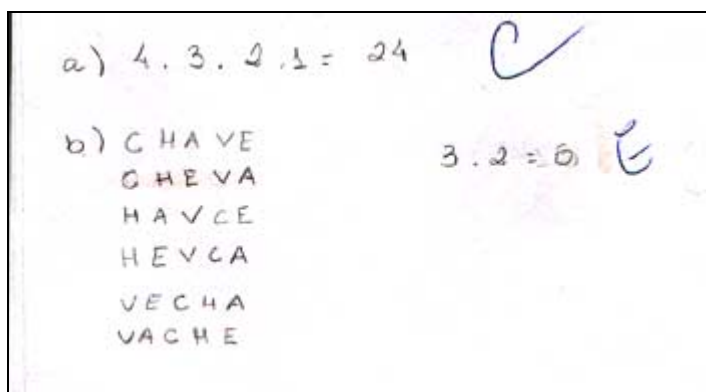 a) 4. 3. 2. 1 = 24 C
b) CHAVE 3. 2 = 6 E
CHEVA
HAVCE
HEVCA
VECHA
VACHE